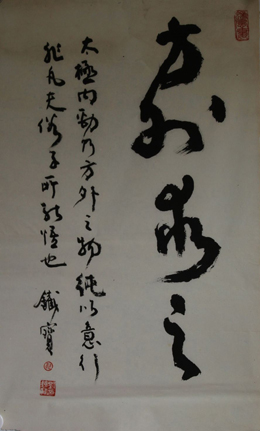 方外求之
太極内勁乃方外之物純以意行
非凡夫俗子所能悟也 鐵寶